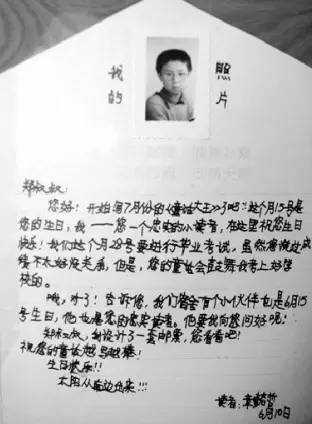 我的
照片
郑叔叔:
您好!开始写7月份的《童话大王》了吧?这个月15号是
您的生日,我——您一个忠实的小读者,在这里祝您生日
快乐!我们这个月28号要进行毕业考试,虽然
绩不太好没关系,但是,您的童话会鼓舞我考上好学
校的。
哦,对了!告诉您,我们宿舍有个小伙伴也是6月15
号生日,他也是您的忠实读者。他要我向您问好呢!
郑叔叔,我设计了一套邮票,您看看吧!
祝您的童话越写越棒!
生日快乐!!
太阳从西边出来!!!
读者:
6月10日